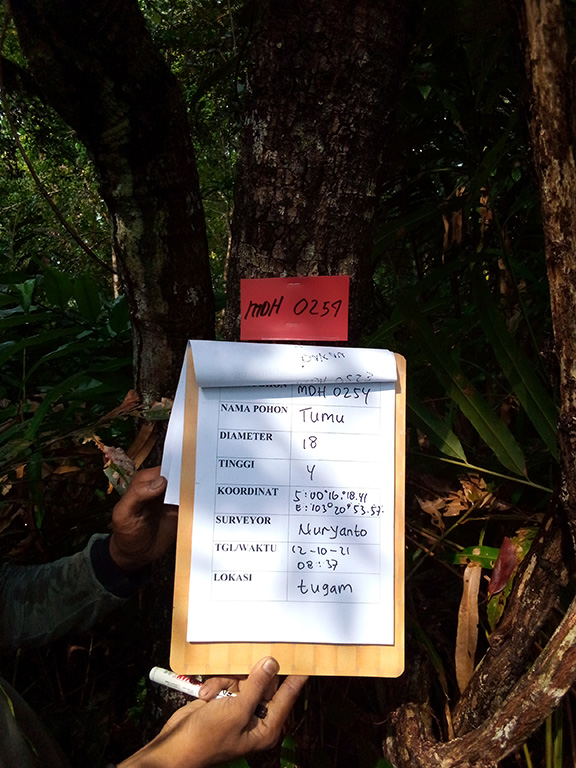 MDH 0254
MDH 0254
NAMA POHON Tumu
DIAMETER 18
TINGGI 4
KOORDINAT S:00°16.'18.41
E:103°20'53.57"
SURVEYOR Nuryanto
TGL/WAKTU 12-10-21
08:37
LOKASI tugam